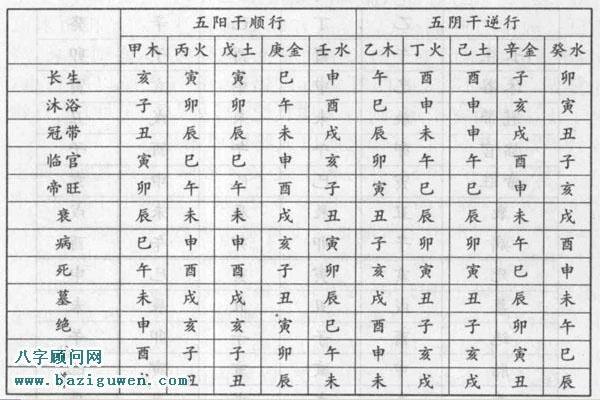 五阳干顺行 五阴干逆行
甲木 丙火 戊土 庚金 壬水 乙木 丁火 己土 辛金 癸水
长生 亥 寅 寅 巳 申 午 酉 酉 子 卯
沐浴 子 卯 卯 午 酉 巳 申 申 亥 寅
冠带 丑 辰 辰 未 戌 辰 未 申 戌 丑
临官 寅 巳 巳 申 亥 卯 午 午 酉 子
帝旺 卯 午 午 酉 子 寅 巳 巳 申 亥
衰 辰 未 未 戌 丑 丑 辰 辰 未 戌
病 巳 申 申 亥 寅 子 卯 卯 午 酉
死 午 酉 酉 子 卯 亥 寅 寅 巳 申
墓 未 戌 戌 丑 辰 戌 丑 丑 辰 未
绝 申 亥 亥 寅 巳 酉 子 子 卯 午
酉 子 子 卯 午 申 亥 亥 寅 巳
丑 丑 辰 未 未 戌 戌 丑 辰
八字顾问网
www.baziguwen.com